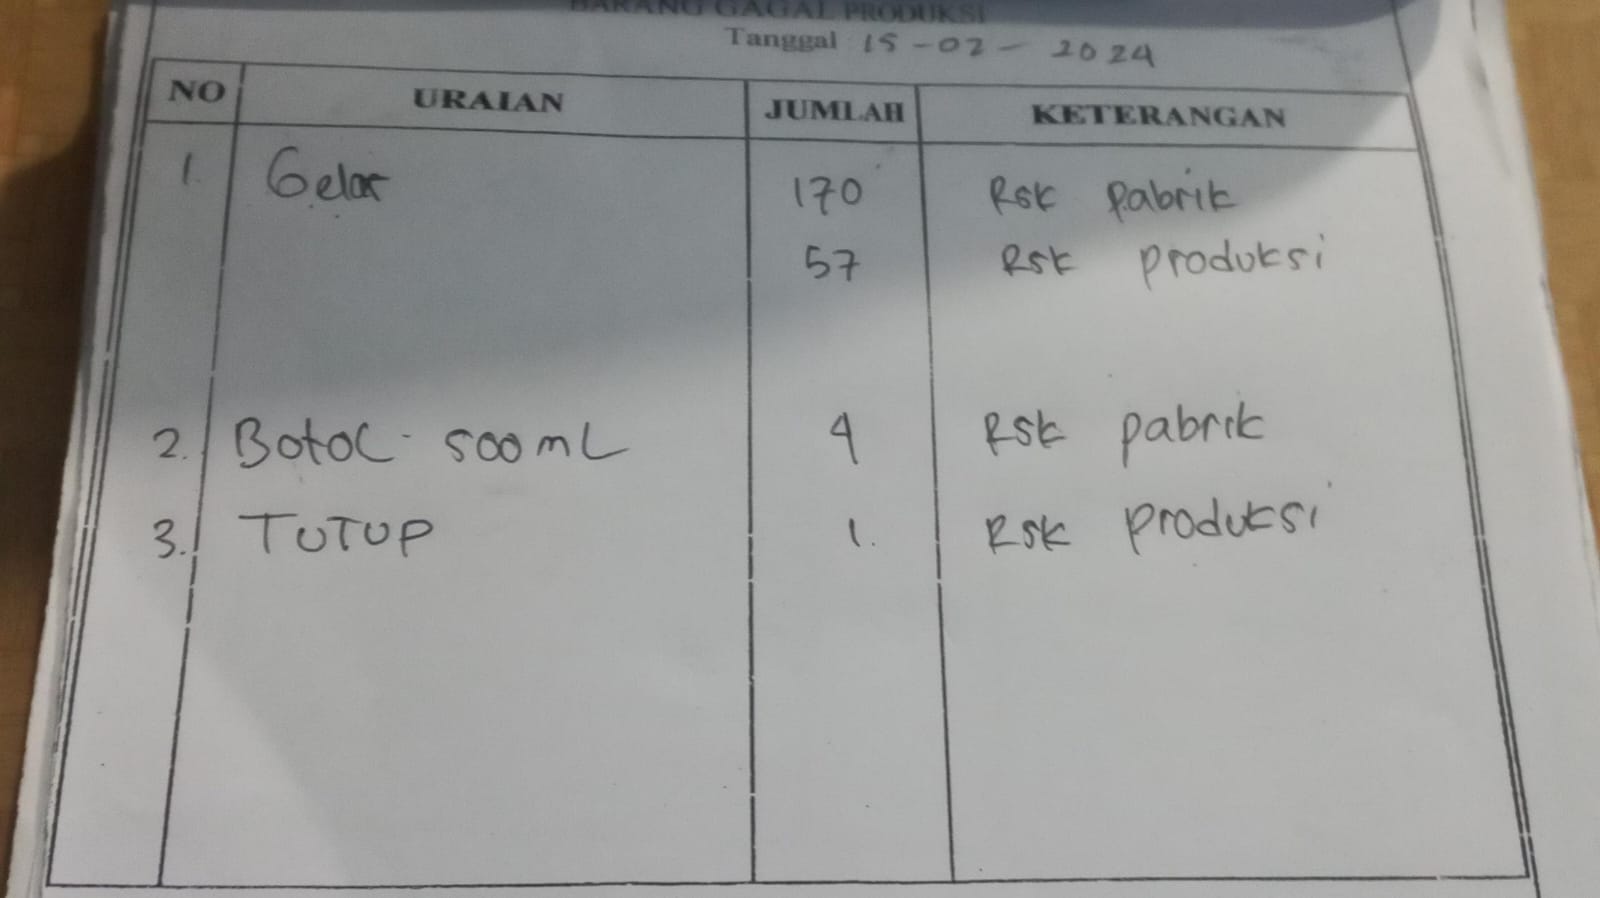 BARANG GAGAL PRODUKSI
Tanggal 15-02-2024
NO URAIAN JUMLAH KETERANGAN
1. Gelas 170 Rsk pabrik
57 Rsk produksi
2. Botol 500 mL 4 Rsk pabrik
3. TUTUP 1. Rsk produksi